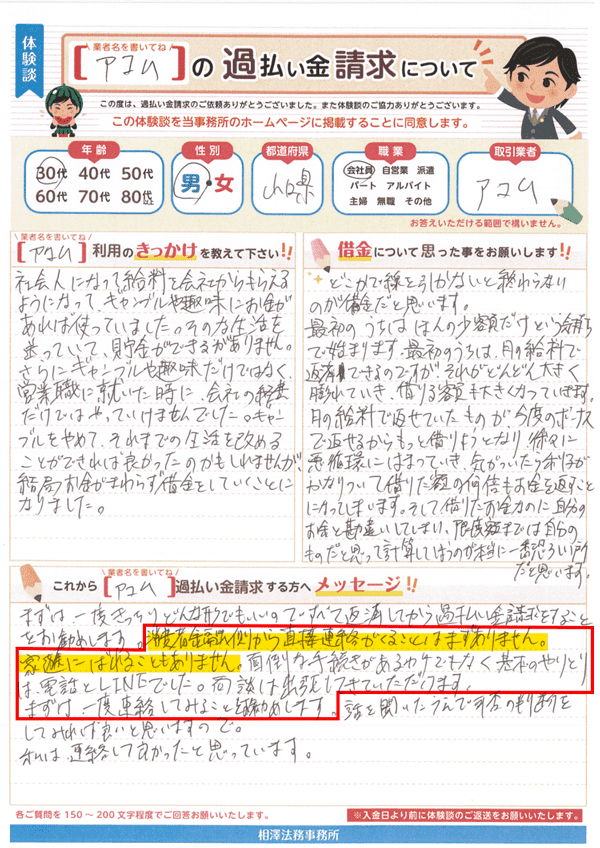 体験談
業者名を書いてね
[アコム]の過払い金請求について
この度は、過払い金請求のご依頼ありがとうございました。また体験談のご協力ありがとうございます。
この体験談を当事務所のホームページに掲載することに同意します。
年齢
30代 40代 50代
60代 70代 80代以上
性別
男・女
都道府県
山口県
職業
会社員 自営業 派遣
パート アルバイト
主婦 無職 その他
取引業者
アコム
お答えいただける範囲で構いません。
業者名を書いてね
[アコム]利用のきっかけを教えて下さい!!
社会人になって給料を会社からもらえる
ようになって、ギャンブルや趣味にお金が
あれば使っていました。そのな生活を
送っていて、貯金ができるがありません。
さらにギャンブルや趣味だけではなく、
営業職に就いた時に、会社の経費
だけではやっていけませんでした。ギャン
ブルをやめて、それまでの生活を改める
ことができれば良かったのかもしれませんが、
結局お金がまわらず借金をしていくことに
なりました。
借金について思った事をお願いします!!
どこかで線を引かないと終わらない
のが借金だと思います。
最初のうちはほんの少額だけという気持ち
で始まります。最初のうちは、月の給料で
返済できるのですが、それがどんどん大きく
膨れていき、借りる額も大きくなっていきます。
月の給料で返せていたものが今度のボーナス
で返せるからもっと借りようとなり、徐々に
悪循環にはまっていき、気がついたら利子が
かなりついて借りた額の何倍もお金を返すこと
になってしまいます。そして借りたお金なのに自分の
お金と勘違いしてしまい、限度額までは自分の
ものだと思って計算してしまうのが本当に一番恐ろしい所
だと思います。
業者名を書いてね
これから[アコム]過払い金請求する方へメッセージ!!
まずは一度きっちりどんな形でもいいのですべて返済してから過払い金請求をすること
をお勧めします。消費者金融側から直接連絡がくることはまずありません。
家族にばれることもありません。面倒な手続きがあるわけでもなく基本のやりとり
は、電話とLINEでした。面談は出張してきていただけます。
まずは一度連絡してみることを勧めします。話を聞いたうえで可否の判断を
してみれば良いと思いますので。
私は、連絡して良かったと思っています。
各ご質問を150～200文字程度でご回答お願いいたします。
※入金日より前に体験談のご返送をお願いいたします。
相澤法務事務所